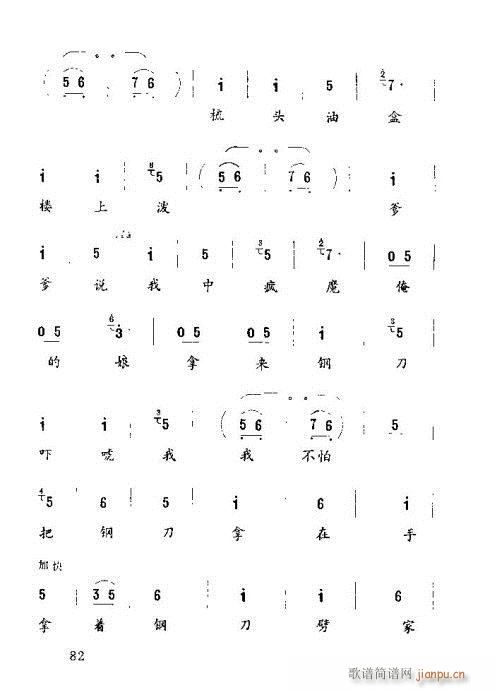 ( 5 6 7 6 ) | i i | 5 2 7· |
梳 头 油 盒
i i | 8 5 ( 5 6 | 7 6 ) i |
楼 上 泼 爹
i 5 | i 5 | 3 5 2 7· | 0 5
爹 说 我 中 疯 魔 俺
0 5 6 3 | 0 5 0 5 | i 3 5 |
的 娘 拿 来 钢 刀
i i | 3 5 ( 5 6 | 7 6 ) 5 |
吓 唬 我 我 不怕
4 5 6 | 5 i | 6 i |
把 钢 刀 拿 在 手
加快
5 3 5 | 6 i | i 6 |
拿 着 钢 刀 劈 家
82
歌谱简谱网
jianpu.cn